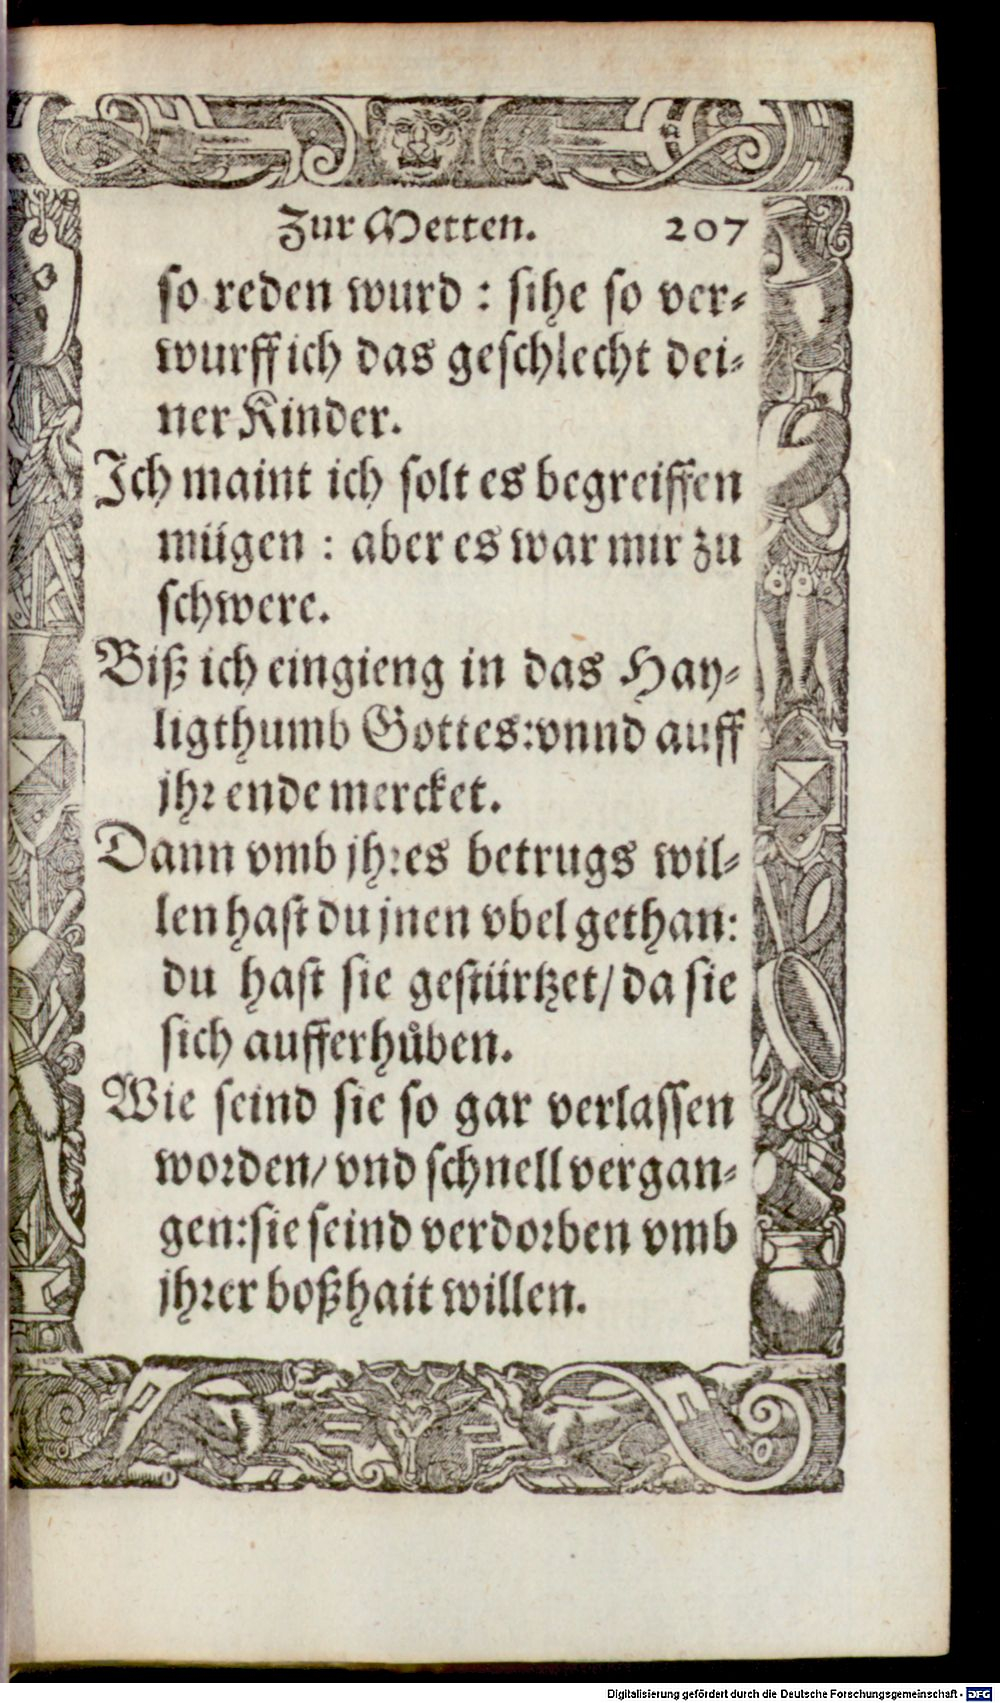 Zur Metten. 207
so reden wurd : sihe so ver⸗
wurff ich das geschlecht dei⸗
ner Kinder.
Ich maint ich solt es begreiffen
mügen : aber es war mir zu
schwere.
Biß ich eingieng in das Hay⸗
ligthumb Gottes: vnnd auff
jhr ende mercket.
Dann vmb jhres betrugs wil⸗
len hast du jnen vbel gethan:
du hast sie gestürtzet/ da sie
sich aufferhůben.
Wie seind sie so gar verlassen
worden/ vnd schnell vergan⸗
gen: sie seind verdorben vmb
jhrer boßhait willen.
Digitalisierung gefördert durch die Deutsche Forschungsgemeinschaft - DFG